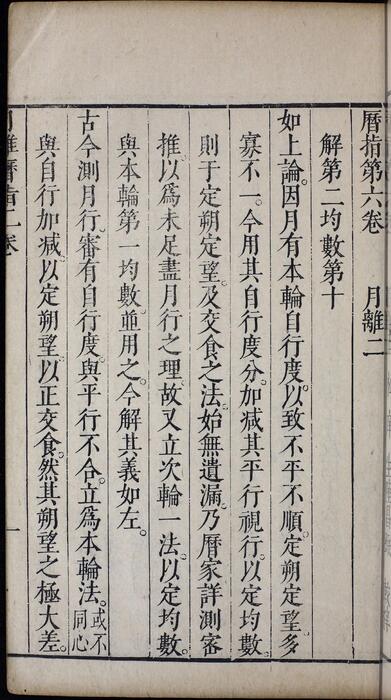 曆指第六卷　月離二
解第二均數第十
如上論。因月有本輪自行度。以致不平不順。定朔定望。多
寡不一。今用其自行度分。加減其平行視行。以定均數。
則于定朔定望。及交食之法。始無遺漏。乃曆家詳測密
推。以爲未足盡月行之理。故又立次輪一法。以定均數。
與本輪第一均數。並用之。今解其義如左。
古今測月行。審有自行度。與平行不合。立爲本輪法。或不同心
與自行加減。以定朔望。以正交食。然其朔望之極大差。
月離曆指二卷
一